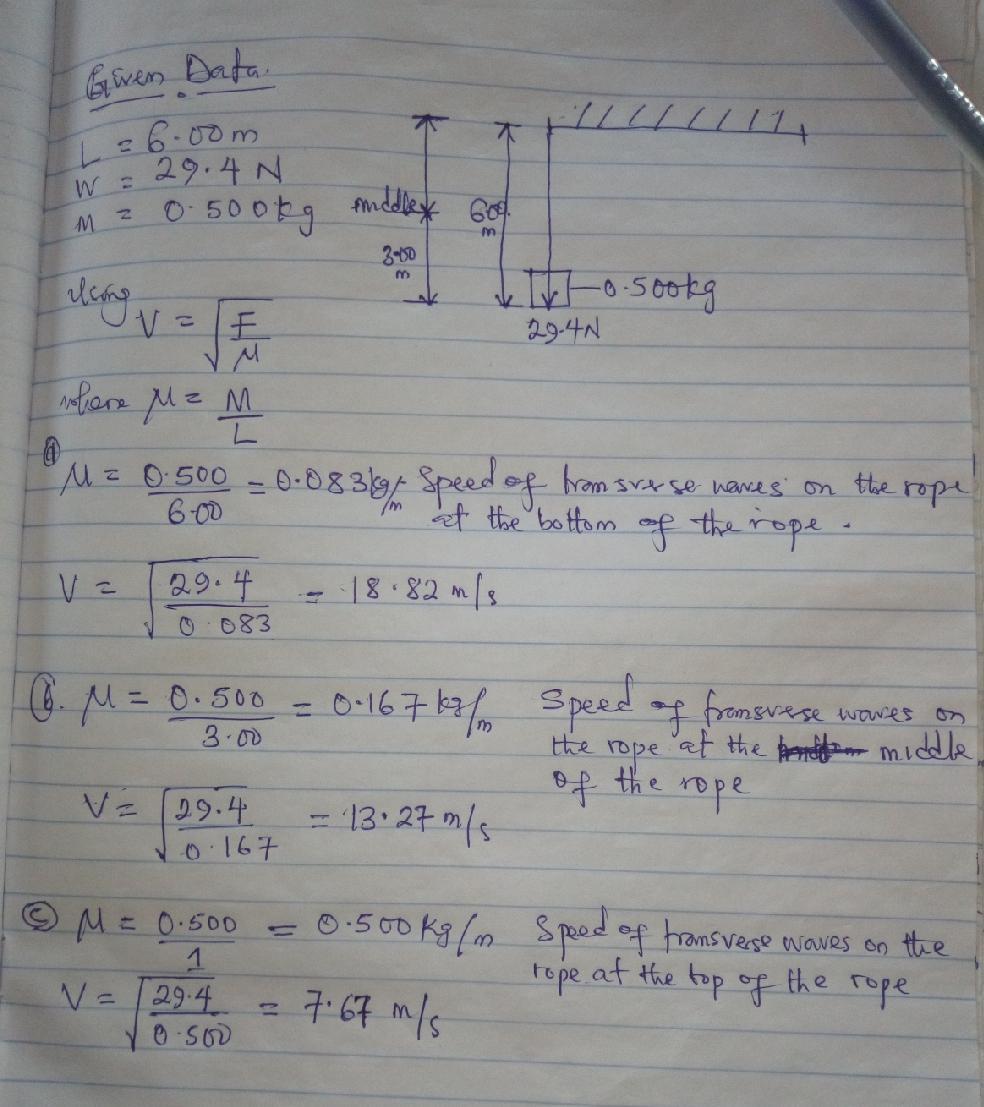 Given Data.
L = 6.00 m
W = 29.4 N
M = 0.500kg
middle
3.00
m
600
m
0.500kg
29.4N
Using
V = √F/μ
where μ = M/L
(a)
μ = 0.500/6.00 = 0.083kg/m Speed of transverse waves on the rope
at the bottom of the rope.
V = √29.4/0.083 = 18.82 m/s
(b). μ = 0.500/3.00 = 0.167 kg/m Speed of transverse waves on
the rope at the middle
of the rope
V = √29.4/0.167 = 13.27 m/s
(c) μ = 0.500/1 = 0.500 kg/m Speed of transverse waves on the
rope at the top of the rope
V = √29.4/0.500 = 7.67 m/s